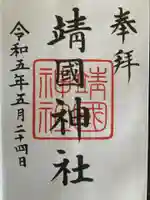 奉拝
靖國神社
令和五年五月二十四日
靖國神社